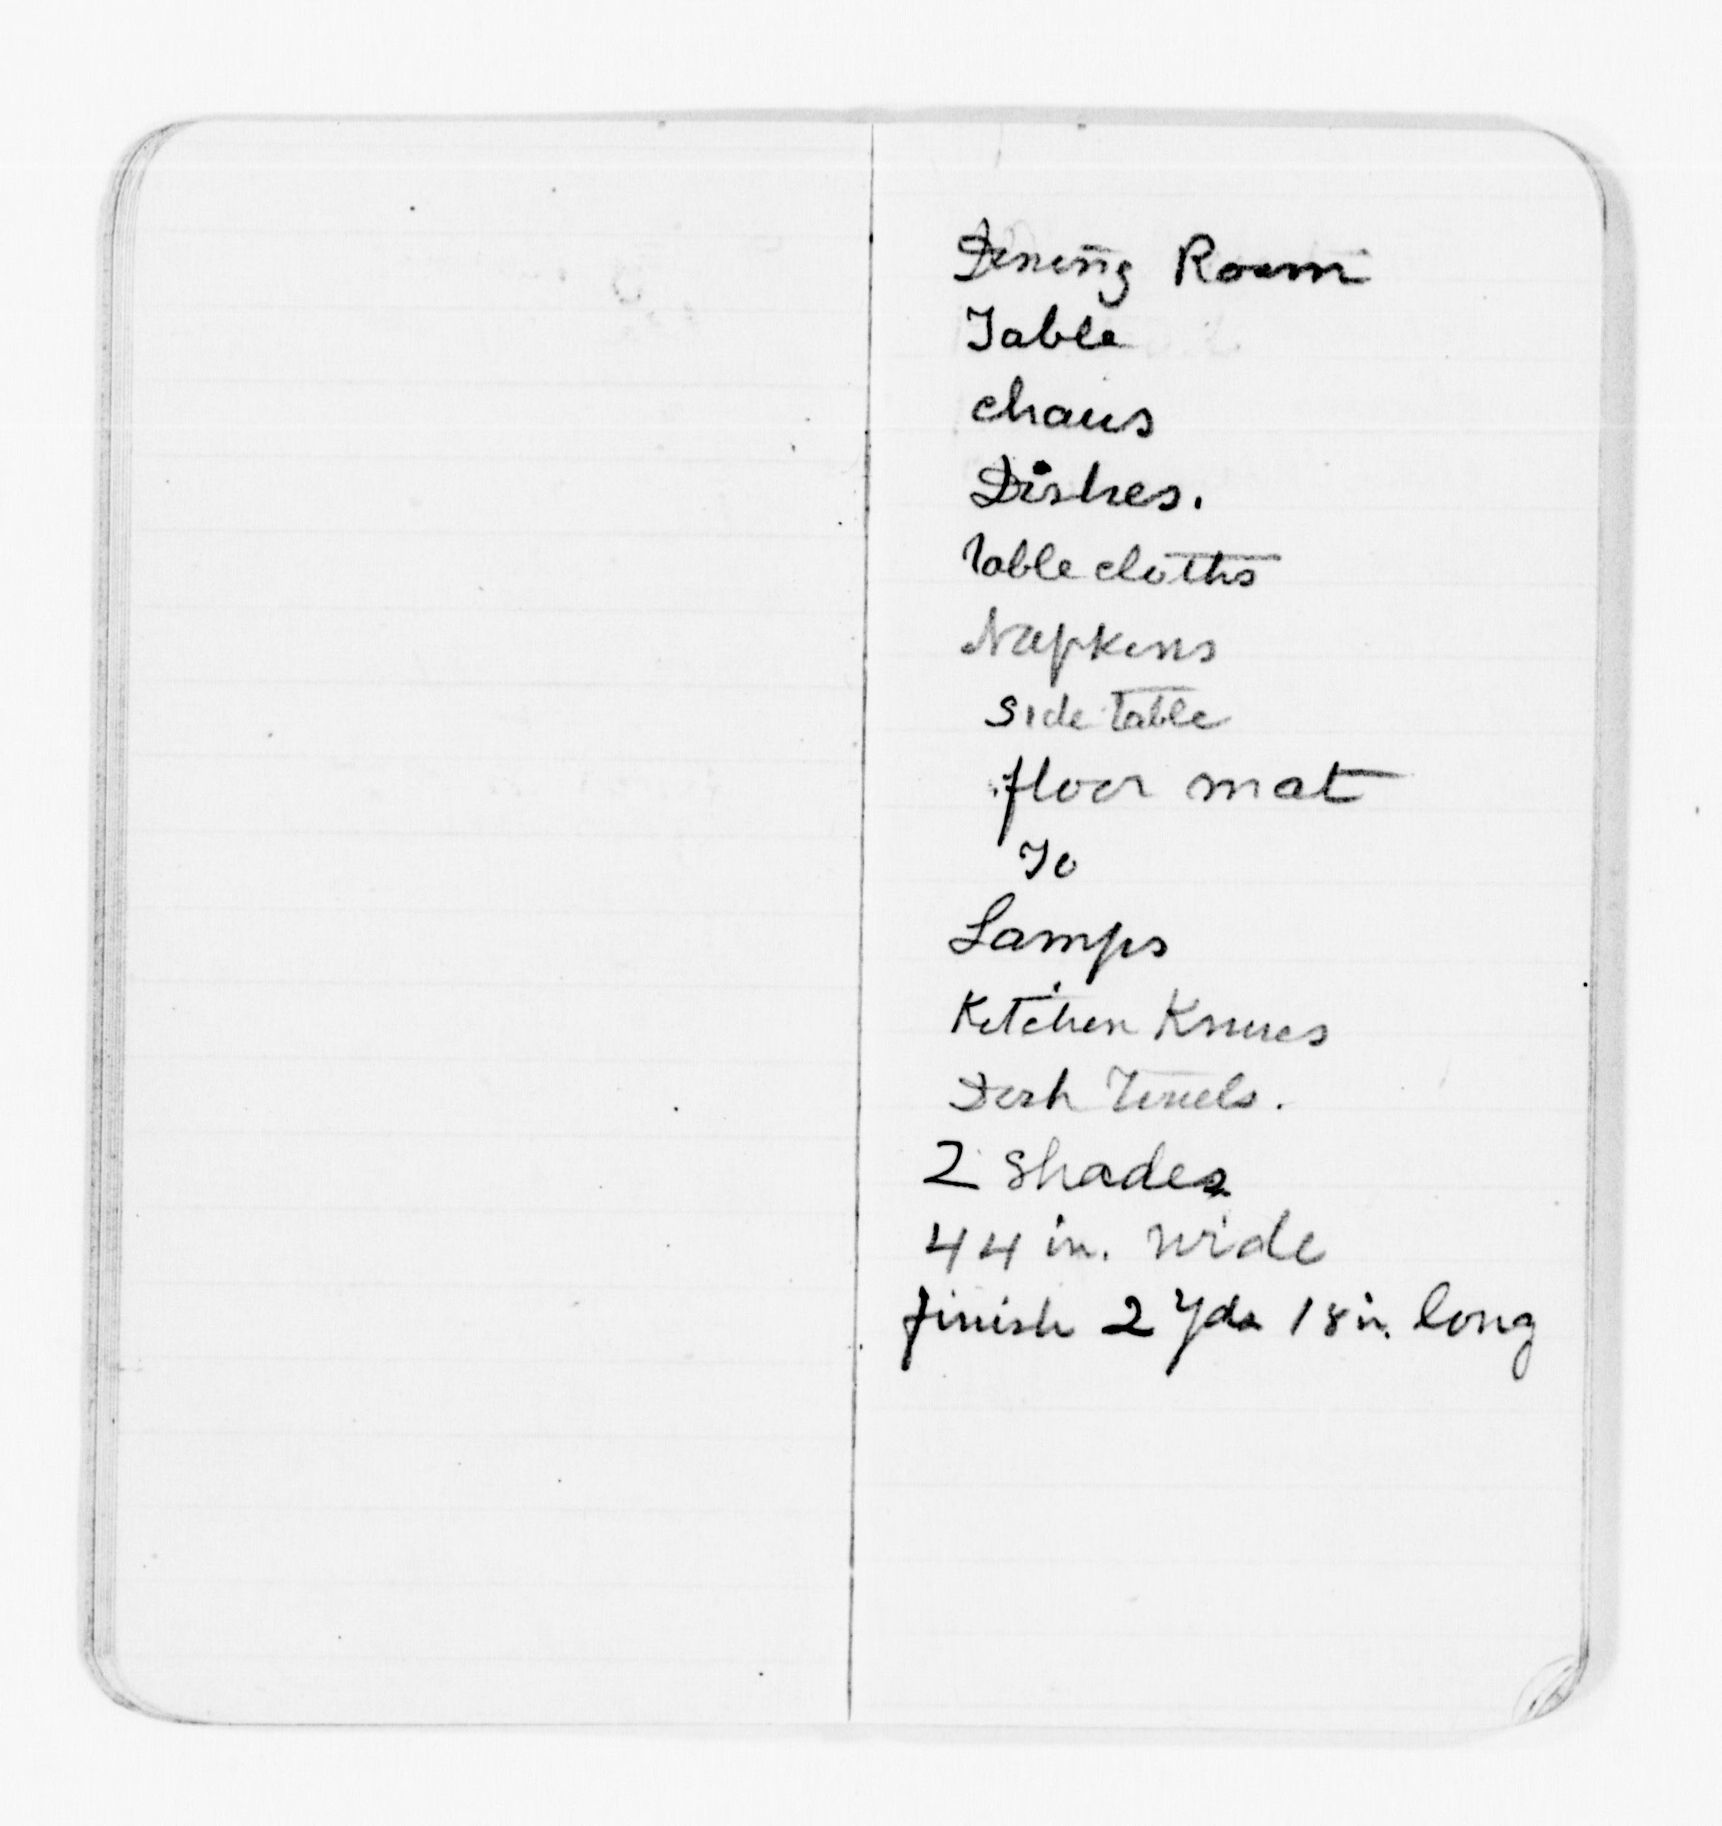 Dining Room
Table
chairs
Dishes.
Table cloths
Napkins
side table
floor mat
To
Lamps
Kitchen Knives
Dish Towels.
2 shades
44 in. wide
finish 2 yds 18 in. long